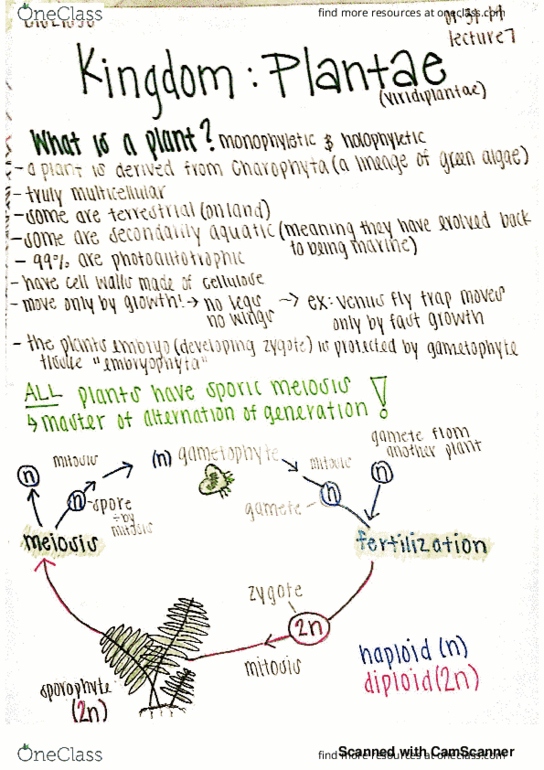 OneClass
find more resources at oneclass.com
lecture 7
Kingdom : Plantae
(viridiplantae)
What is a plant? monophyletic & holophyletic
- a plant is derived from Charophyta (a lineage of green algae)
- truly multicellular
- some are terrestrial (on land)
- some are secondarily aquatic (meaning they have evolved back
to being marine)
- 99% are photoautotrophic
- have cell walls made of cellulose
- move only by growth! → no legs → ex: venus fly trap moves
no wings only by fast growth
- the plants embryo (developing zygote) is protected by gametophyte
tissue "embryophyta"
ALL plants have sporic meiosis !
↳ master of alternation of generation
gamete from
another plant
n mitosis (n) gametophyte mitosis n
n - spore
÷ by
mitosis
gamete - n
meiosis
fertilization
zygote
2n
mitosis
haploid (n)
diploid (2n)
sporophyte
(2n)
Scanned with CamScanner
OneClass
find more resources at oneclass.com